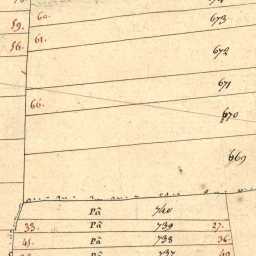 59. 60. 673
56. 61.
672
671
66.
670
669
Pâ 740
33. Pâ 739 27.
45. Pâ 738 36.
Pâ 737